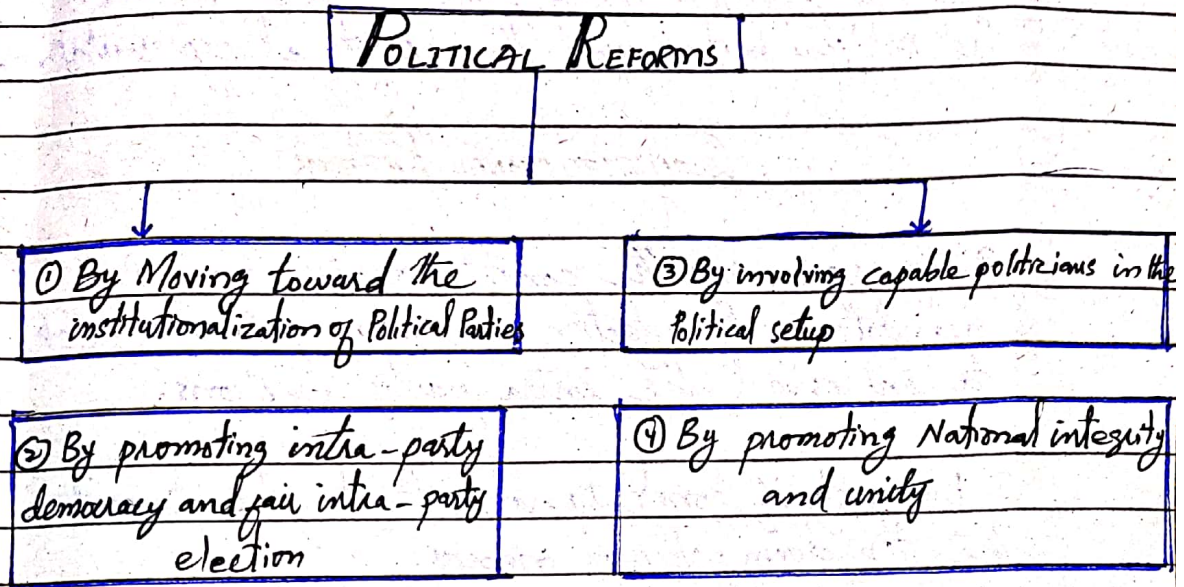 POLITICAL REFORMS
① By Moving toward the
institutionalization of Political Parties
② By promoting intra-party
democracy and fair intra-party
election
③ By involving capable politicians in the
Political setup
④ By promoting National integrity
and unity